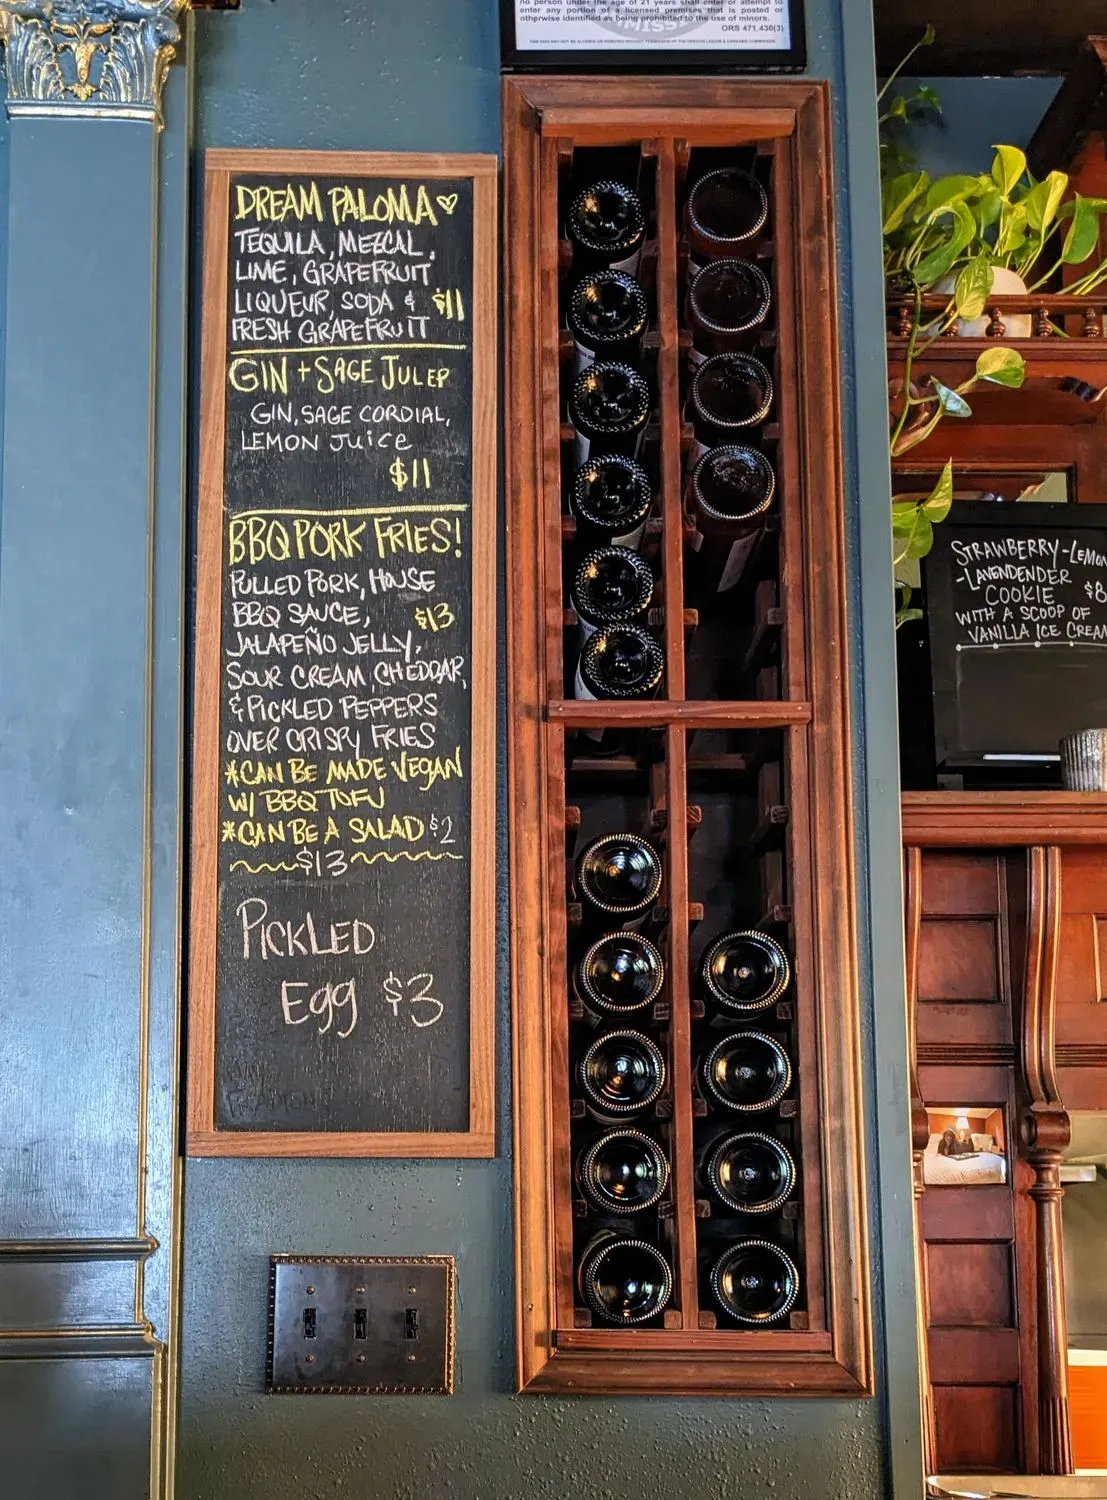 no person under the age of 21 years shall enter or attempt to
enter any portion of a licensed premises that is posted or
otherwise identified as being prohibited to the use of minors.
ORS 471.430(3)
DREAM PALOMA
TEQUILA, MEZCAL,
LIME, GRAPEFRUIT
LIQUEUR, SODA & $11
FRESH GRAPEFRUIT
GIN + SAGE JULEP
GIN, SAGE CORDIAL,
LEMON JUICE
$11
BBQ PORK FRIES!
PULLED PORK, HOUSE
BBQ SAUCE, $13
JALAPEÑO JELLY,
SOUR CREAM, CHEDDAR,
& PICKLED PEPPERS
OVER CRISPY FRIES
*CAN BE MADE VEGAN
W/ BBQ TOFU
*CAN BE A SALAD $2
$13
PICKLED
Egg $3
STRAWBERRY-LEMON
-LAVENDENDER
COOKIE $8
WITH A SCOOP OF
VANILLA ICE CREAM